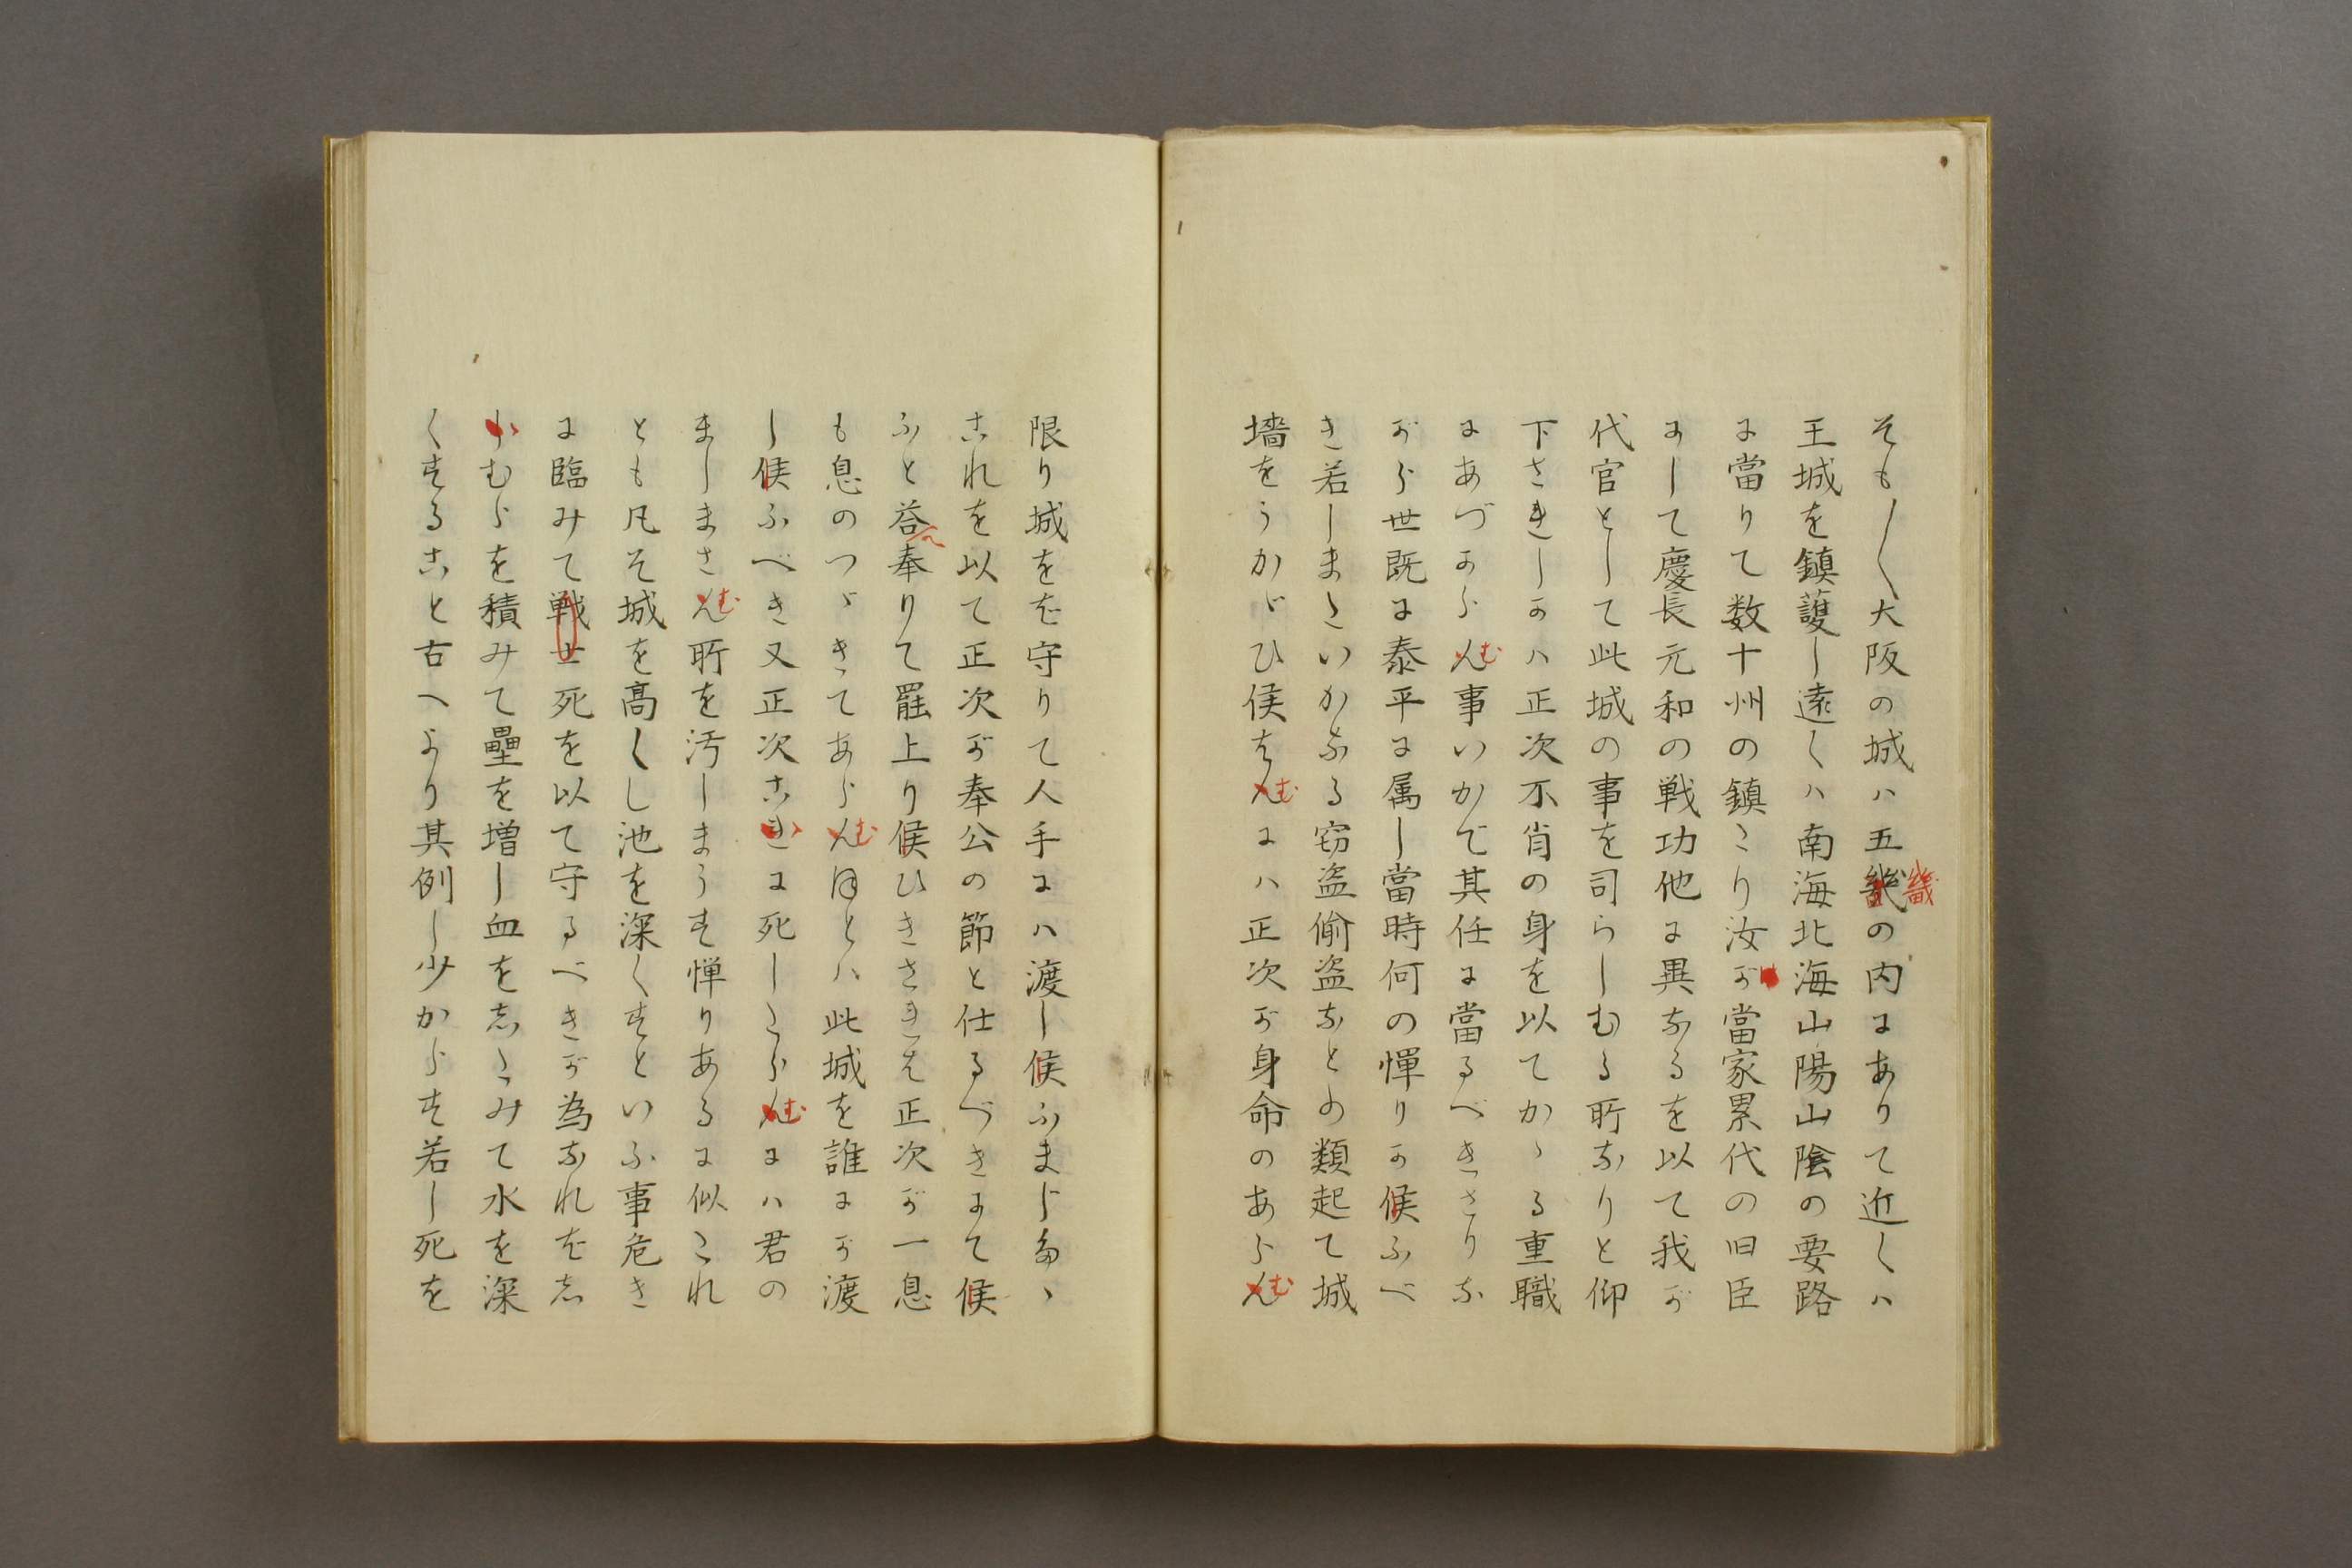 そも〱大阪の城ハ五畿の内にありて近くハ
王城を鎮護し遠くハ南海北海山陽山陰の要路
に當りて数十州の鎮たり汝が當家累代の旧臣
にして慶長元和の戦功他に異なるを以て我が
代官として此城の事を司らしむる所なりと仰
下されしかハ正次不肖の身を以てかゝる重職
にあづからむ事いかで其任に當るべきさりな
がら世既に泰平に属し當時何の憚りか候ふべ
き若しまたいかなる窃盗偸盗なとの類起て城
墻をうかゞひ候はむにハ正次が身命のあらむ
限り城をば守りて人手にハ渡し候ふまじたゝ
これを以て正次が奉公の節と仕るべきまて候
ふと答へ奉りて罷上り候ひきされは正次が一息
も息のつゞきてあらむほとハ此城を誰にか渡
し候ふべき又正次こゝに死したらむにハ君の
ましまさむ所を汚しまうす憚りあるに似たれ
とも凡そ城を高くし池を深くすといふ事危き
に臨みて士死を以て守るべきが為なればし
かむらを積みて壘を増し血をしたみて水を深
くすること古へより其例し少からす若し死を